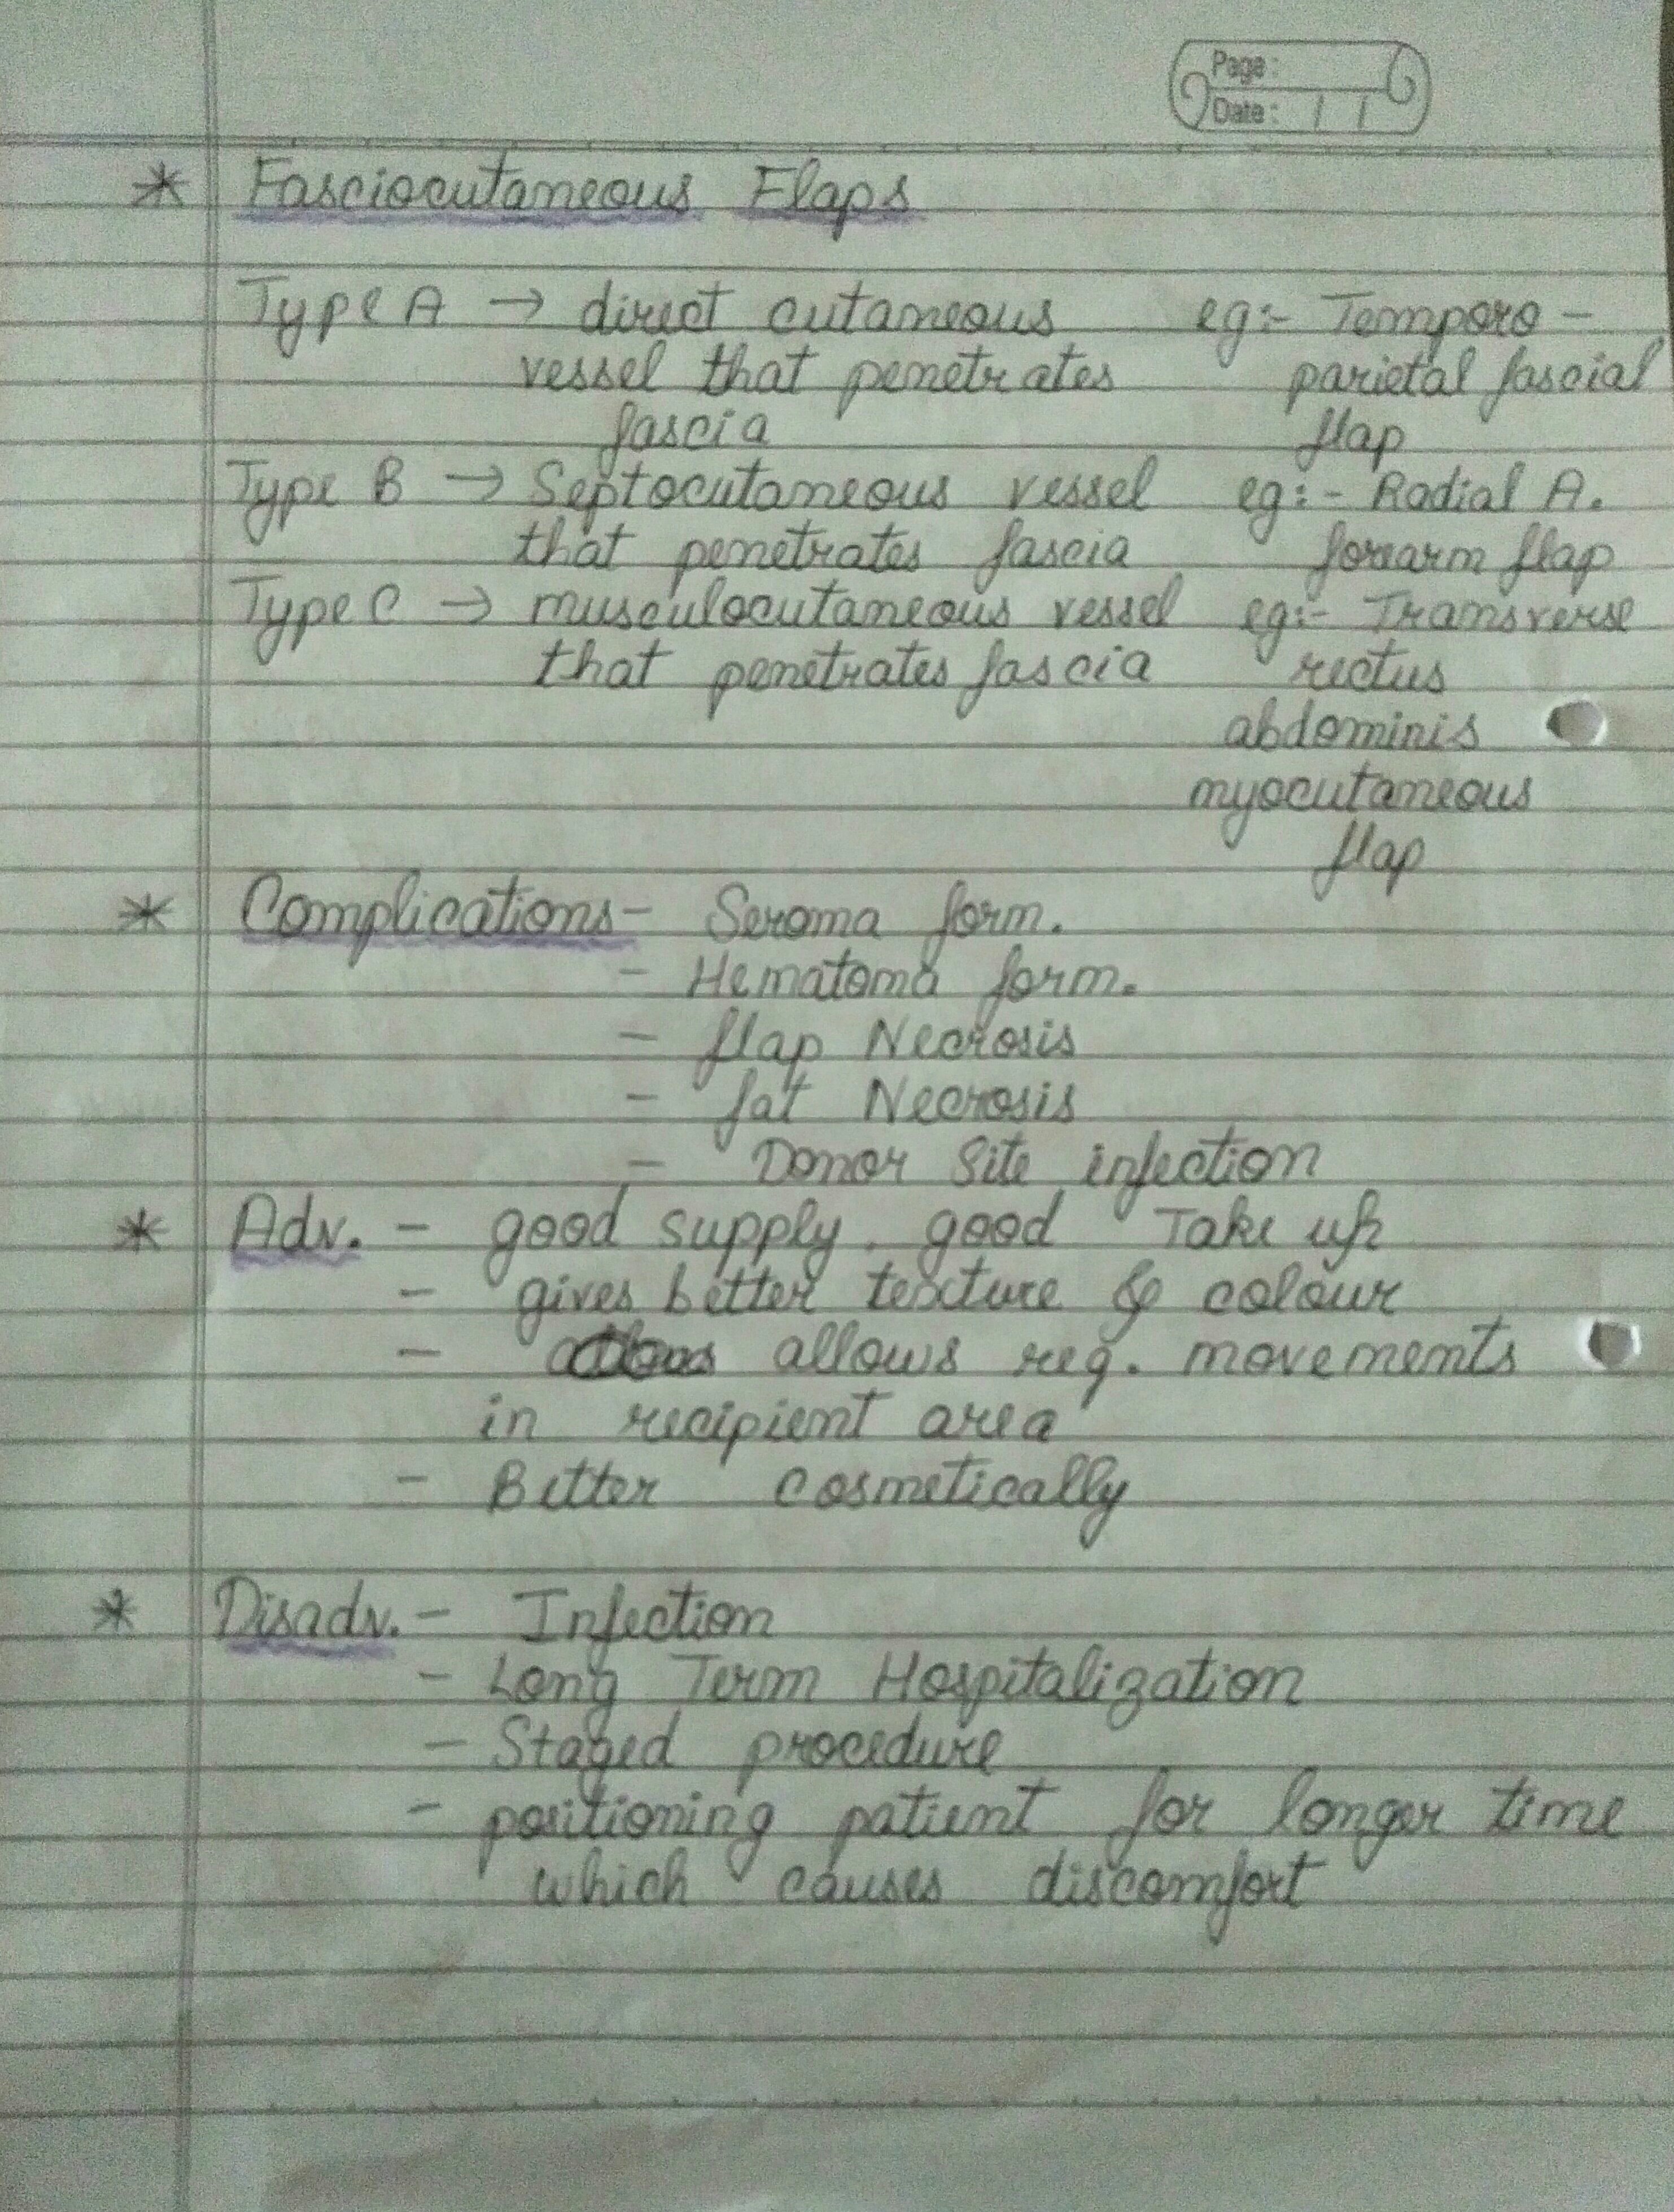 Page :
Date : / /
* Fasciocutaneous Flaps
Type A → direct cutaneous eg:- Temporo -
vessel that penetrates parietal fascial
fascia flap
Type B → Septocutaneous vessel eg:- Radial A.
that penetrates fascia forearm flap
Type C → musculocutaneous vessel eg:- Transverse
that penetrates fascia rectus
abdominis
myocutaneous
flap
* Complications - Seroma form.
- Hematoma form.
- flap Necrosis
- fat Necrosis
- Donor Site infection
* Adv. - good supply. good Take up
- gives better texture & colour
- allows reg. movements
in recipient area
- Better cosmetically
* Disadv. - Infection
- Long Term Hospitalization
- Staged procedure
- positioning patient for longer time
which causes discomfort